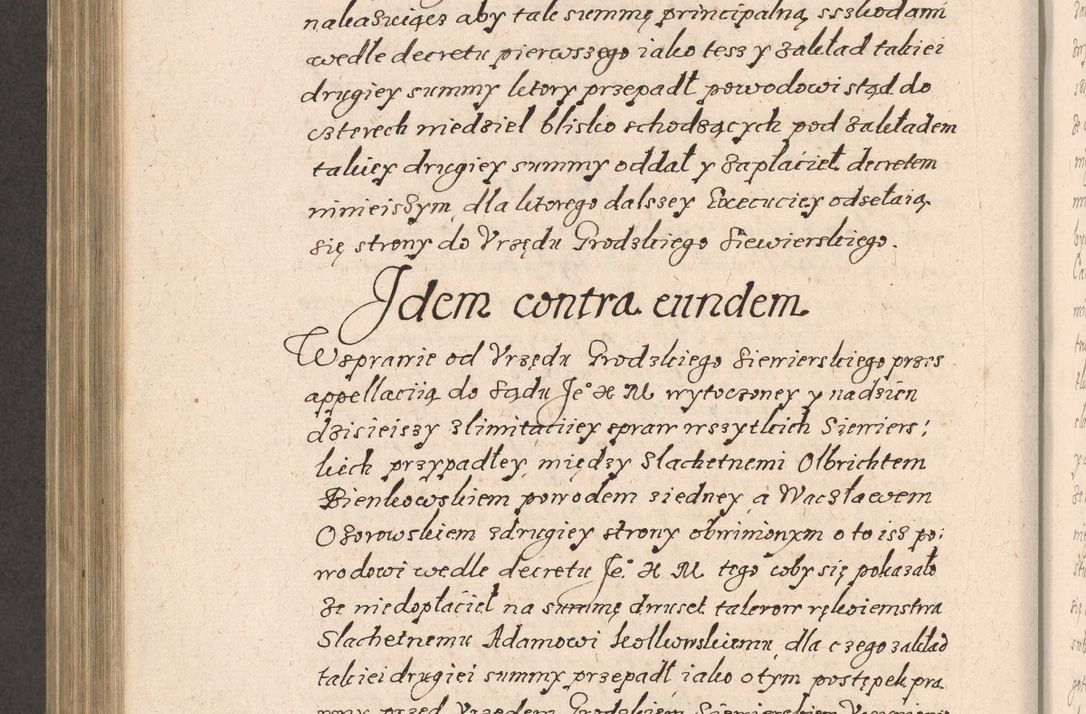 nakazuiąc aby tak summę principalną z szkodami
wedle decretu pierwszego iako tesz y zakład takiei
drugiey summy ktory przepadł powodowi stąd do
czterech niedziel blisko schodzących pod zakładem
takiey drugiey summy oddał y zapłacieł decretem
ninieiszym, dla ktorego dalszey Execuciey odsełaią
się strony do Vrzędu Grodzkiego Siewierskiego.
Idem contra eundem
W sprawie od Vrzędu Grodzkiego Siewierskiego przes
appellaciią do sądu Je° X M wytoczoney y na dzien
dzisieiszy z limitaciiey spraw wszytkich Siewiers:
kich przypadłey między Slachetnemi Olbrichtem
Bienkowskiem powodem z iedney, a Waczławem
Ozorowskiem z drugiey strony obwinionym o to isz po:
wodowi wedle decretu Je° X M tego coby się pokazało
że niedopłacieł na summę dwuset talerow rękoiemstwa
Slachetnemu Adamowi Kotkowskiemu, dla czego zakład
takiei drugiei summy przepadł iako o tym postępek pra
wny przed Vrzędem Grodzkiem Siewierskiem